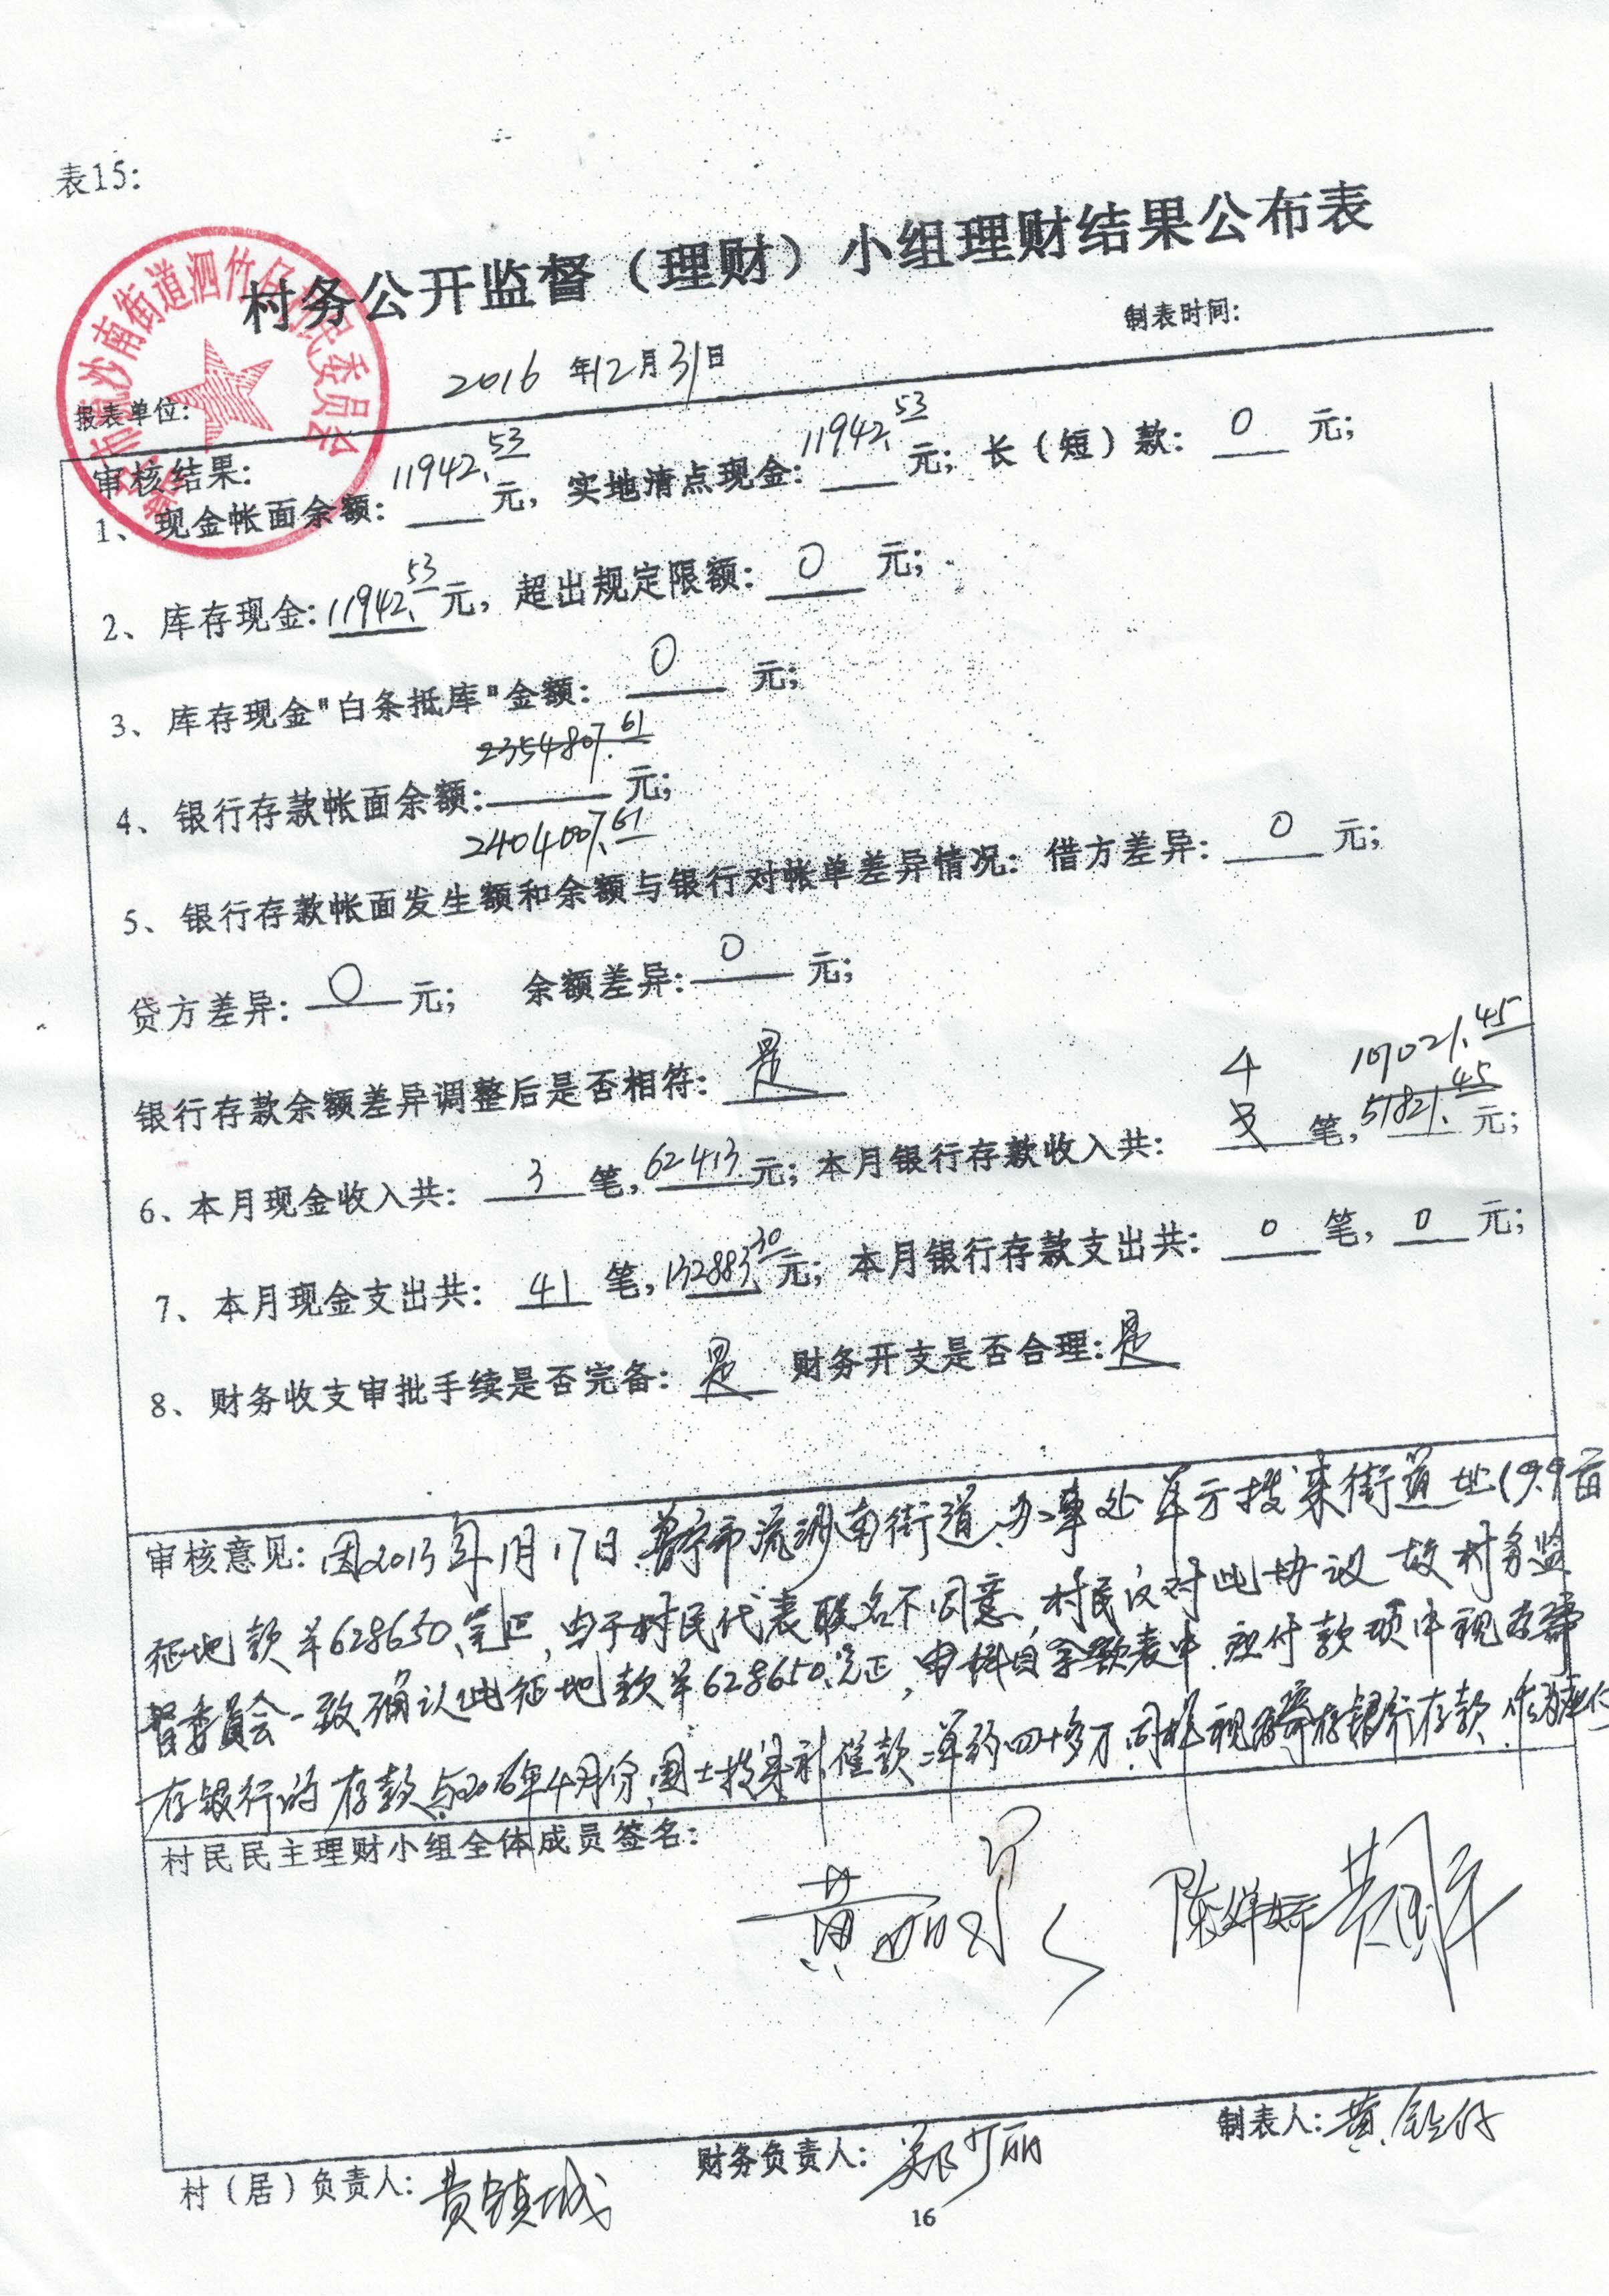 表15:
村务公开监督（理财）小组理财结果公布表
制表时间:
2016 年12月31日
报表单位:
沙南街道泗竹 民委员会
审核结果:
1、现金帐面余额: 11942.53 元, 实地清点现金: 11942.53 元; 长（短）款: 0 元;
2、库存现金: 11942.53 元, 超出规定限额: 0 元;
3、库存现金"白条抵库"金额: 0 元;
2354807.61
4、银行存款帐面余额: 元;
2404007.61
5、银行存款帐面发生额和余额与银行对帐单差异情况: 借方差异: 0 元;
贷方差异: 0 元; 余额差异: 0 元;
银行存款余额差异调整后是否相符: 是
4 107021.45
6、本月现金收入共: 3 笔, 62413 元; 本月银行存款收入共: 3 笔, 51821.45 元;
7、本月现金支出共: 41 笔, 132883.30 元; 本月银行存款支出共: 0 笔, 0 元;
8、财务收支审批手续是否完备: 是 财务开支是否合理: 是
审核意见: 因2013年1月17日普宁市流沙南街道办事处单方拨来街道址19.9亩
征地款￥628650元正, 由于村民代表联名不同意, 村民反对此协议 故村务监
督委员会一致确认此征地款￥628650元正, 由科目余额表中 应付款项中视为寄
存银行的存款 与2016年4月份 国土拨来补偿款 单约四十多万 同样视为寄存银行存款
村民民主理财小组全体成员签名:
黄 陈婵娇 黄
村（居）负责人: 黄镇城 财务负责人: 郑少丽 制表人: 黄
16